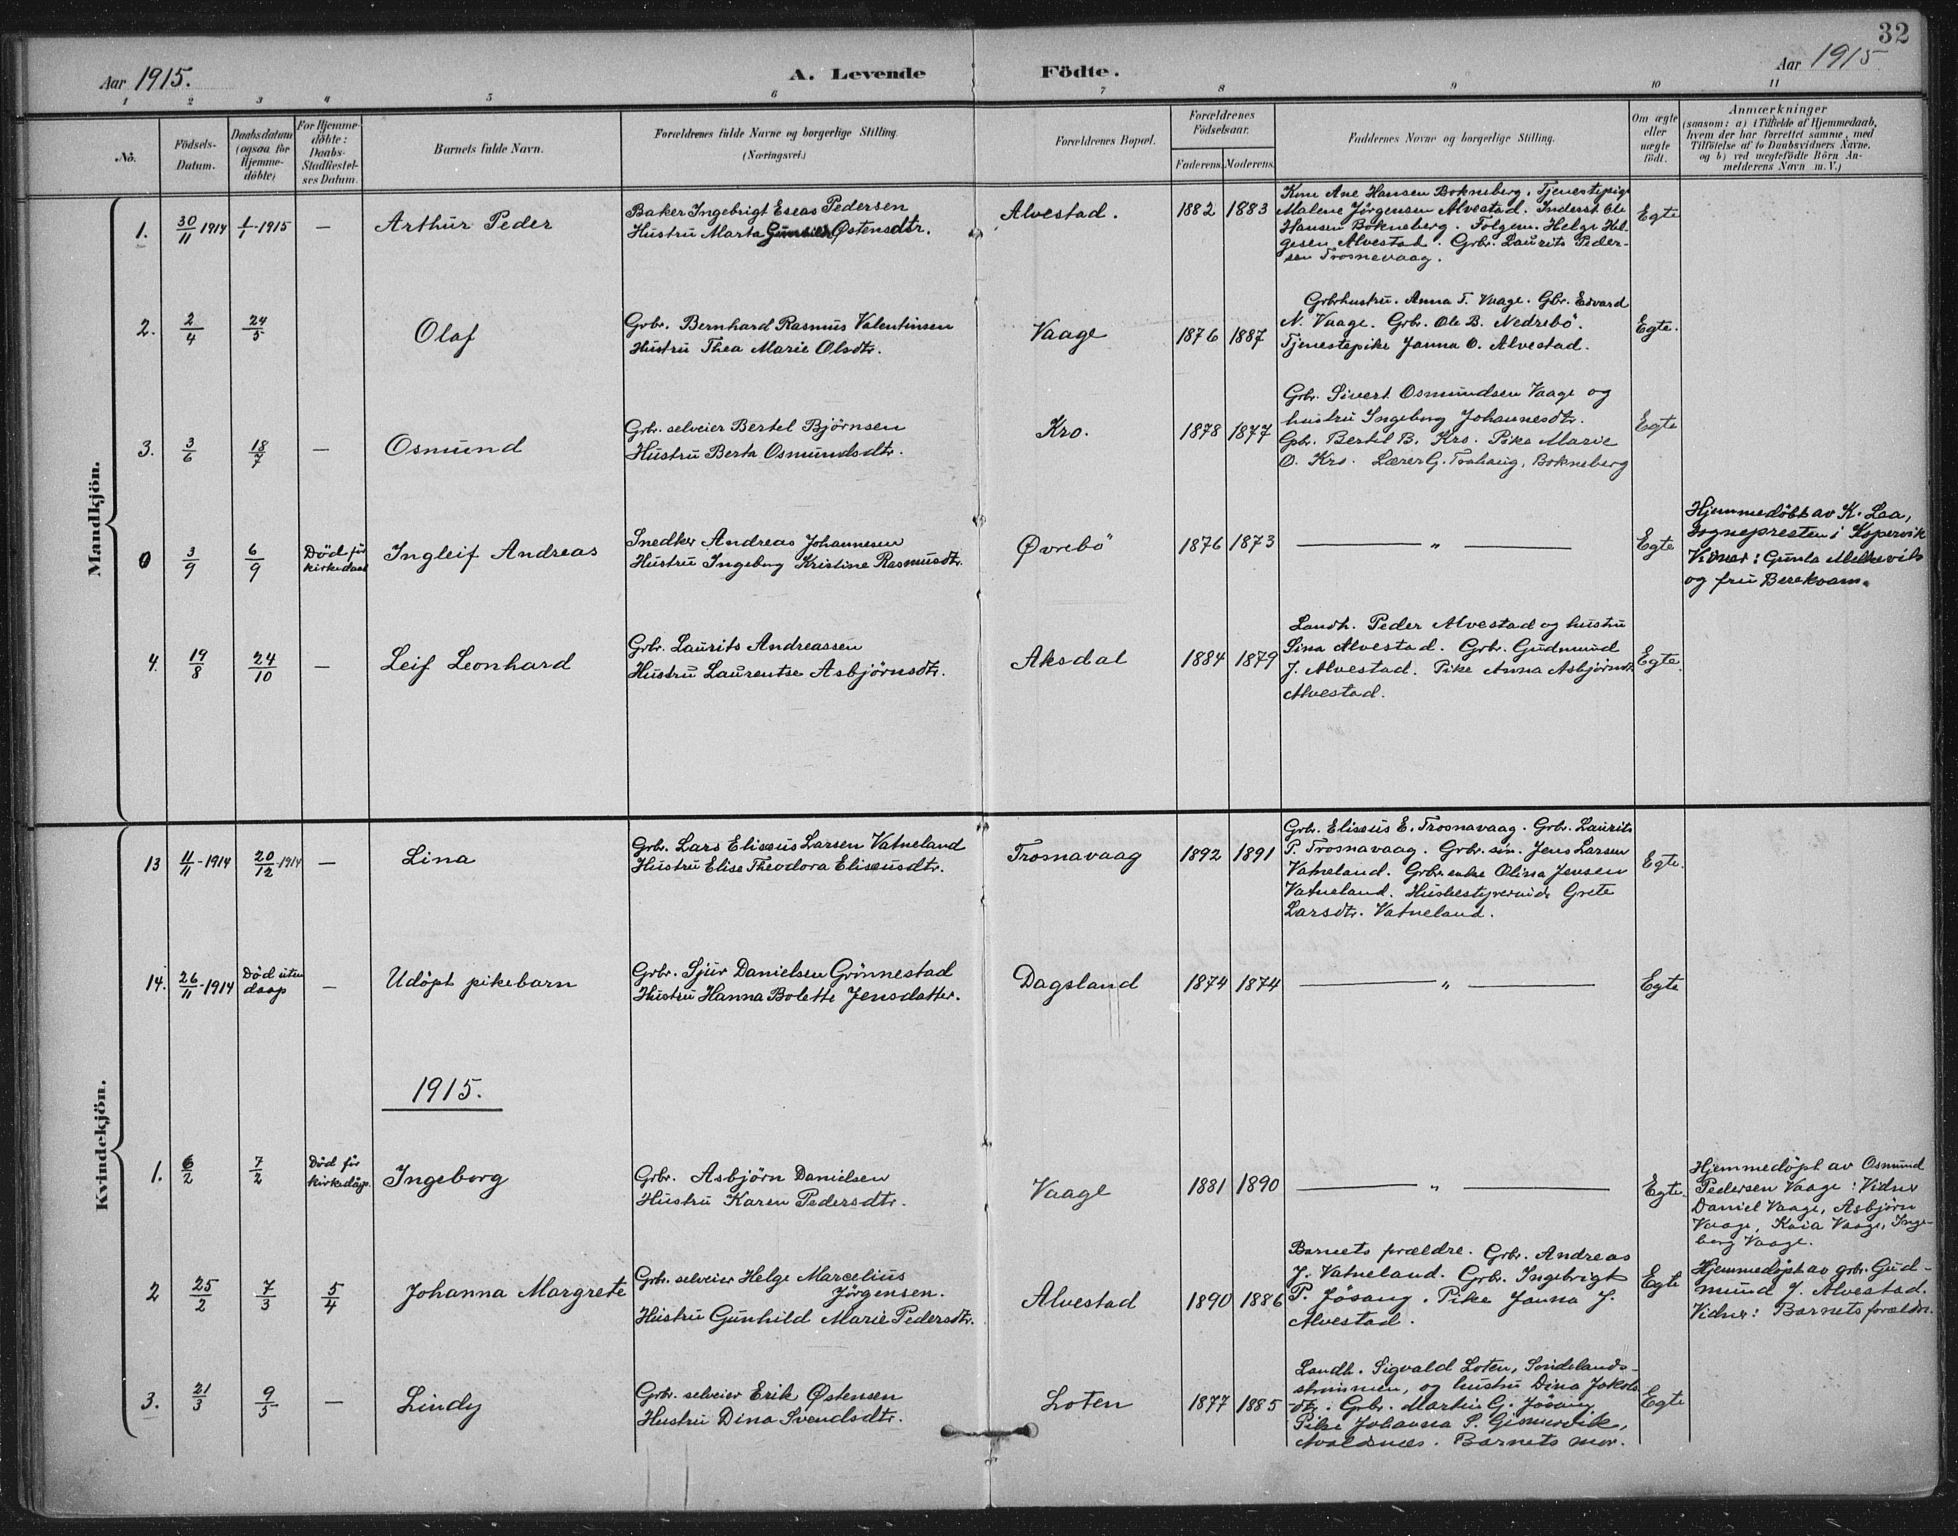 32
Aar 1915.
A. Levende Födte.
Aar 1915
1 2 3 4 5 6 7 8 9 10 11
No.
Födsels-
Datum.
Daabsdatum
(ogsaa for
Hjemme-
döbte)
For Hjemme-
döbte:
Daabs-
Stadfæstel-
ses Datum.
Barnets fulde Navn.
Forældrenes fulde Navne og borgerlige Stilling.
(Næringsvei.)
Forældrenes Bopæl.
Forældrenes
Födselsaar.
Faderens. Moderens.
Faddernes Navne og borgerlige Stilling.
Om ægte
eller
uægte
födt.
Anmærkninger
(saasom: a) i Tilfælde af Hjemmedaab,
hvem der har forrettet samme, med
Tilföielse af to Daabsvidners Navne,
og b) ved uægtefödte Börn An-
melderens Navn m. V.)
Mandkjön.
1. 30/11 1914 1/1-1915 — Arthur Peder
Baker Ingebrigt Eseas Pedersen
Hustru Marta Gunhild Østensdtr.
Alvestad. 1882 1883
Kom Ane Hansen Bokneberg. Tjenestepige
Malene Jörgensen Alvestad. Inderst Ole
Hansen Bokneberg. Folgem. Helge Hel-
gesen Alvestad. Grbr. Laurits Peder-
sen Trosnevaag.
Egte
2. 2/4 24/5 Olaf
Grbr. Bernhard Rasmus Valentinsen
Hustru Thea Marie Olsdtr.
Vaage 1876 1887
Grbrhustru. Anna T. Vaage. Gbr. Edvard
N. Vaage. Grbr. Ole B. Nedrebö.
Tjenestepike Janna O. Alvestad.
Egte.
3. 3/6 18/7 — Osmund
Grbr. selveier Bertel Bjørnsen
Hustru Berta Osmundsdtr.
Kro. 1878 1877
Grbr. Sivert Osmundsen Vaage og
hustru Ingeborg Johannesdtr.
Gbr. Bertel B. Kro. Pike Marie
O. Kro. Lærer G. Trohaug, Bokneberg
Egte
0 3/9 6/9 Död før
kirkedaab
Ingleif Andreas
Snedker Andreas Johannesen
Hustru Ingeborg Kristine Rasmusdtr.
Øvrebö 1876 1873 — " — Egte
Hjemmedöbt av K. Laa,
Sognepresten i Kopervik
Vidner: Gunla Melkevik
og fru Berekvam.
4. 19/8 24/10 — Leif Leonhard
Grbr. Laurits Andreassen
Hustru Laurentse Asbjørnsdtr.
Aksdal 1884 1879
Landh. Peder Alvestad og hustru
Sina Alvestad. Grbr. Gudmund
J. Alvestad. Pike Anna Asbjørnsdtr.
Alvestad.
Egte.
Kvindekjön.
13 11/11-1914 20/12-1914 — Lina
Grbr. Lars Elisæus Larsen Vatneland
Hustru Elise Theodora Elisæusdtr.
Trosnavaag 1892 1891
Grbr. Elisæus E. Trosnavaag. Grbr. Laurits
P. Trosnavaag. Grbr. søn. Jens Larsen
Vatneland. Grbr enke Olina Jensen
Vatneland. Husbestyrerinde Grete
Larsdtr. Vatneland.
Egte.
14. 26/11-1914 Död uten
daap — Udöpt pikebarn
Grbr. Sjur Danielsen Grönnestad
Hustru Hanna Bolette Jensdatter.
Dagsland 1874 1874 — " — Egte
1915.
1. 6/2 7/2 Död før
kirkedåp.
Ingeborg
Grbr. Asbjörn Danielsen
Hustru Karen Pedersdtr.
Vaage 1881 1890 — " — Egte.
Hjemmedöpt av Osmund
Pedersen Vaage: Vidner
Daniel Vaage, Asbjörn
Vaage, Kaia Vaage, Inge-
borg Vaage.
2 25/2 7/3 5/4 Johanna Margrete
Grbr. selveier Helge Marcelius
Jørgensen.
Hustru Gunhild Marie Pedersdtr.
Alvestad 1890 1886
Barnets forældre. Grbr. Andreas
J. Vatneland. Grbr. Ingebrigt
P. Jösang. Pike Janna J.
Alvestad.
Egte
Hjemmedöpt av grbr. Gud-
mund J. Alvestad.
Vidner: Barnets forældre.
3. 21/3 9/5 — Lindy
Grbr. selveier Erik Østensen
Hustru Dina Svendsdtr.
Loten 1877 1885
Landh. Sigvald Loten, Søndelands-
strømmen, og hustru Dina Jakobs-
dtr. Grbr. Martin G. Jösang,
Pike Johanna S. Gismervik,
Avaldsnes. Barnets mor.
Egte